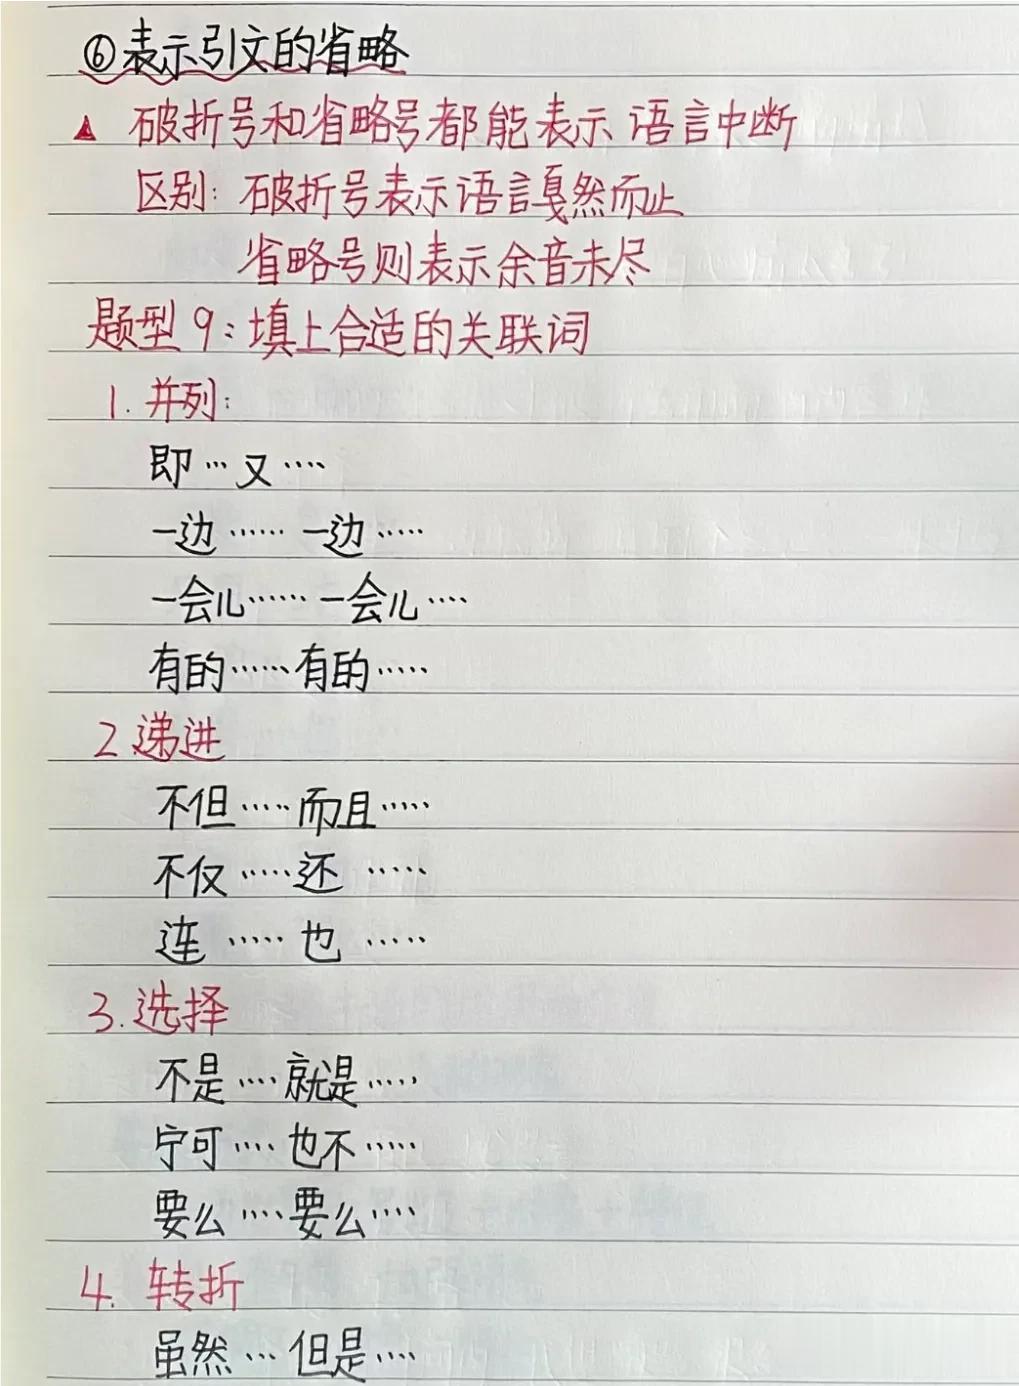 ⑥表示引文的省略
▲ 破折号和省略号都能表示语言中断
区别：破折号表示语言戛然而止
省略号则表示余音未尽
题型9：填上合适的关联词
1. 并列：
即…又…
一边……一边……
一会儿……一会儿……
有的……有的……
2 递进
不但……而且……
不仅……还……
连……也……
3. 选择
不是……就是……
宁可……也不……
要么……要么……
4. 转折
虽然…但是…